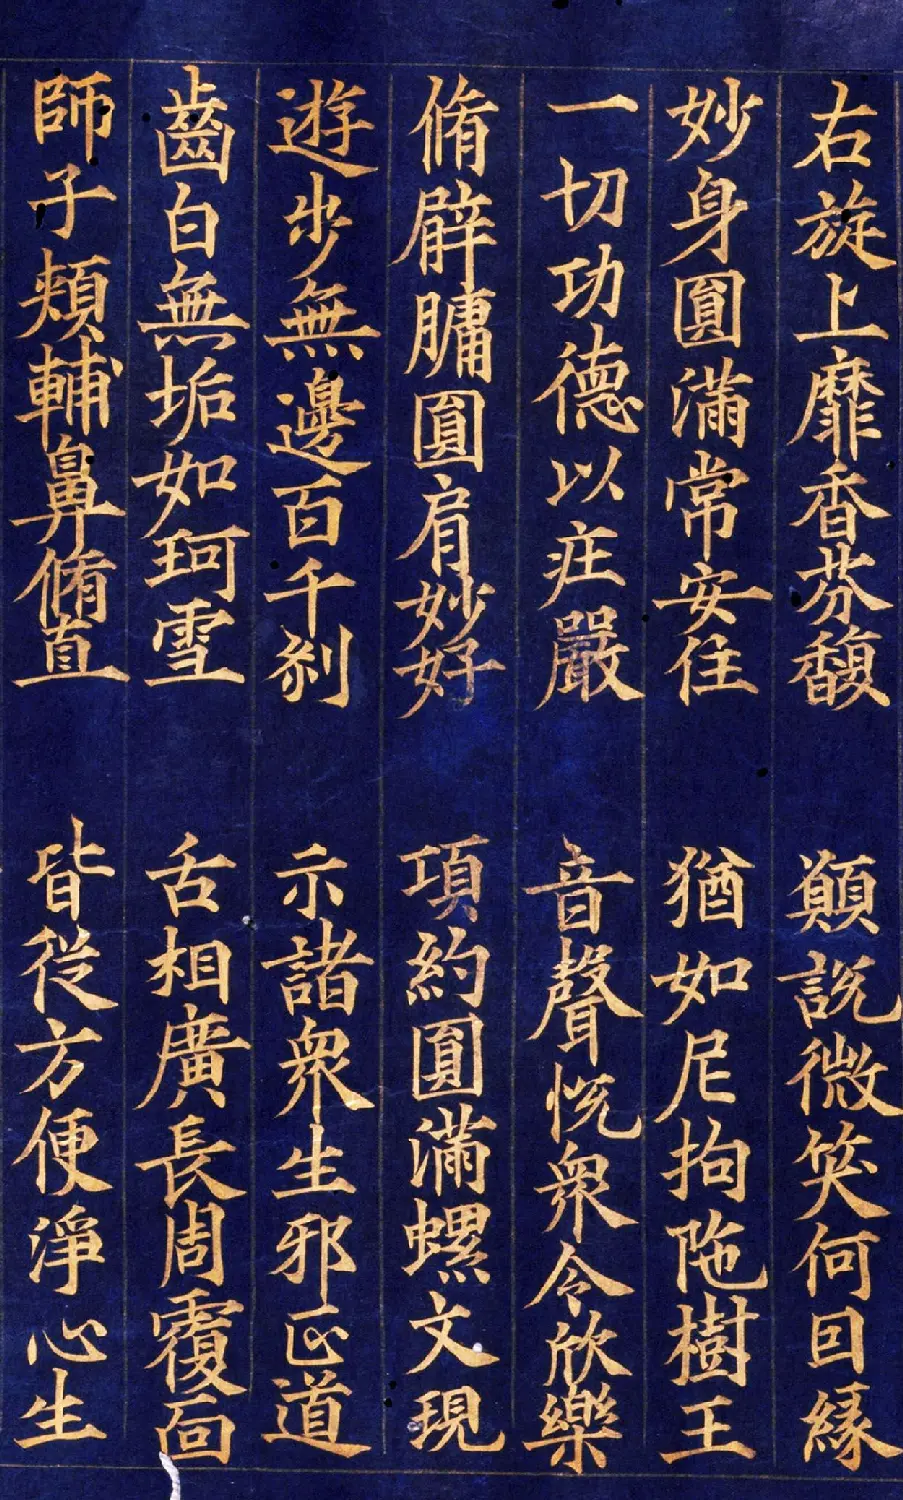 右旋上靡香芬馥　願說微笑何因緣
妙身圓滿常安住　猶如尼拘陁樹王
一切功德以莊嚴　音聲悅衆令欣樂
脩臂𦟛圓肩妙好　項約圓滿螺文現
遊步無邊百千刹　示諸衆生邪正道
齒白無垢如珂雪　舌相廣長周覆面
師子頰輔鼻脩直　皆從方便淨心生